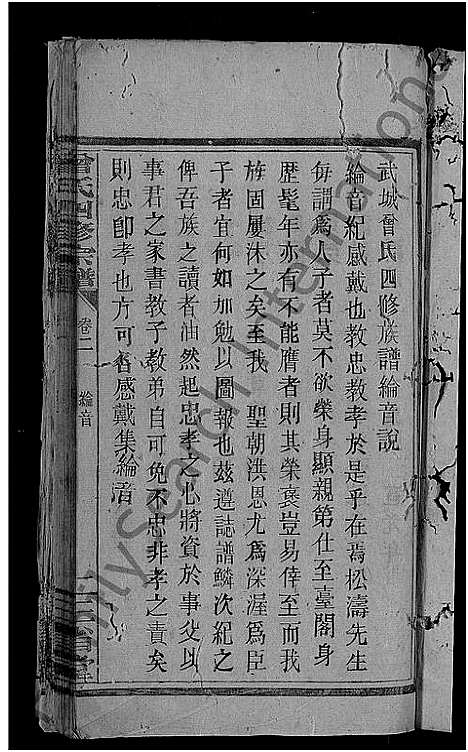 武城曾氏四修族譜綸音說
綸音紀感戴也教忠教孝於是乎在焉松濤先生
每謂爲人子者莫不欲榮身顯親第仕至臺閣身
歷髦年亦有不能膺者則其榮褒豈易倖至而我
族固屢沐之矣至我 聖朝洪恩尤爲深渥爲臣
子者宜何如加勉以圖報也茲遵誌譜鱗次紀之
俾吾族之讀者油然起忠孝之心將資於事父以
事君之家書教子教弟自可免不忠非孝之責矣
則忠卽孝也方可名感戴集綸音
曾氏四修宗譜
卷二
綸音
三省堂
MySearch International